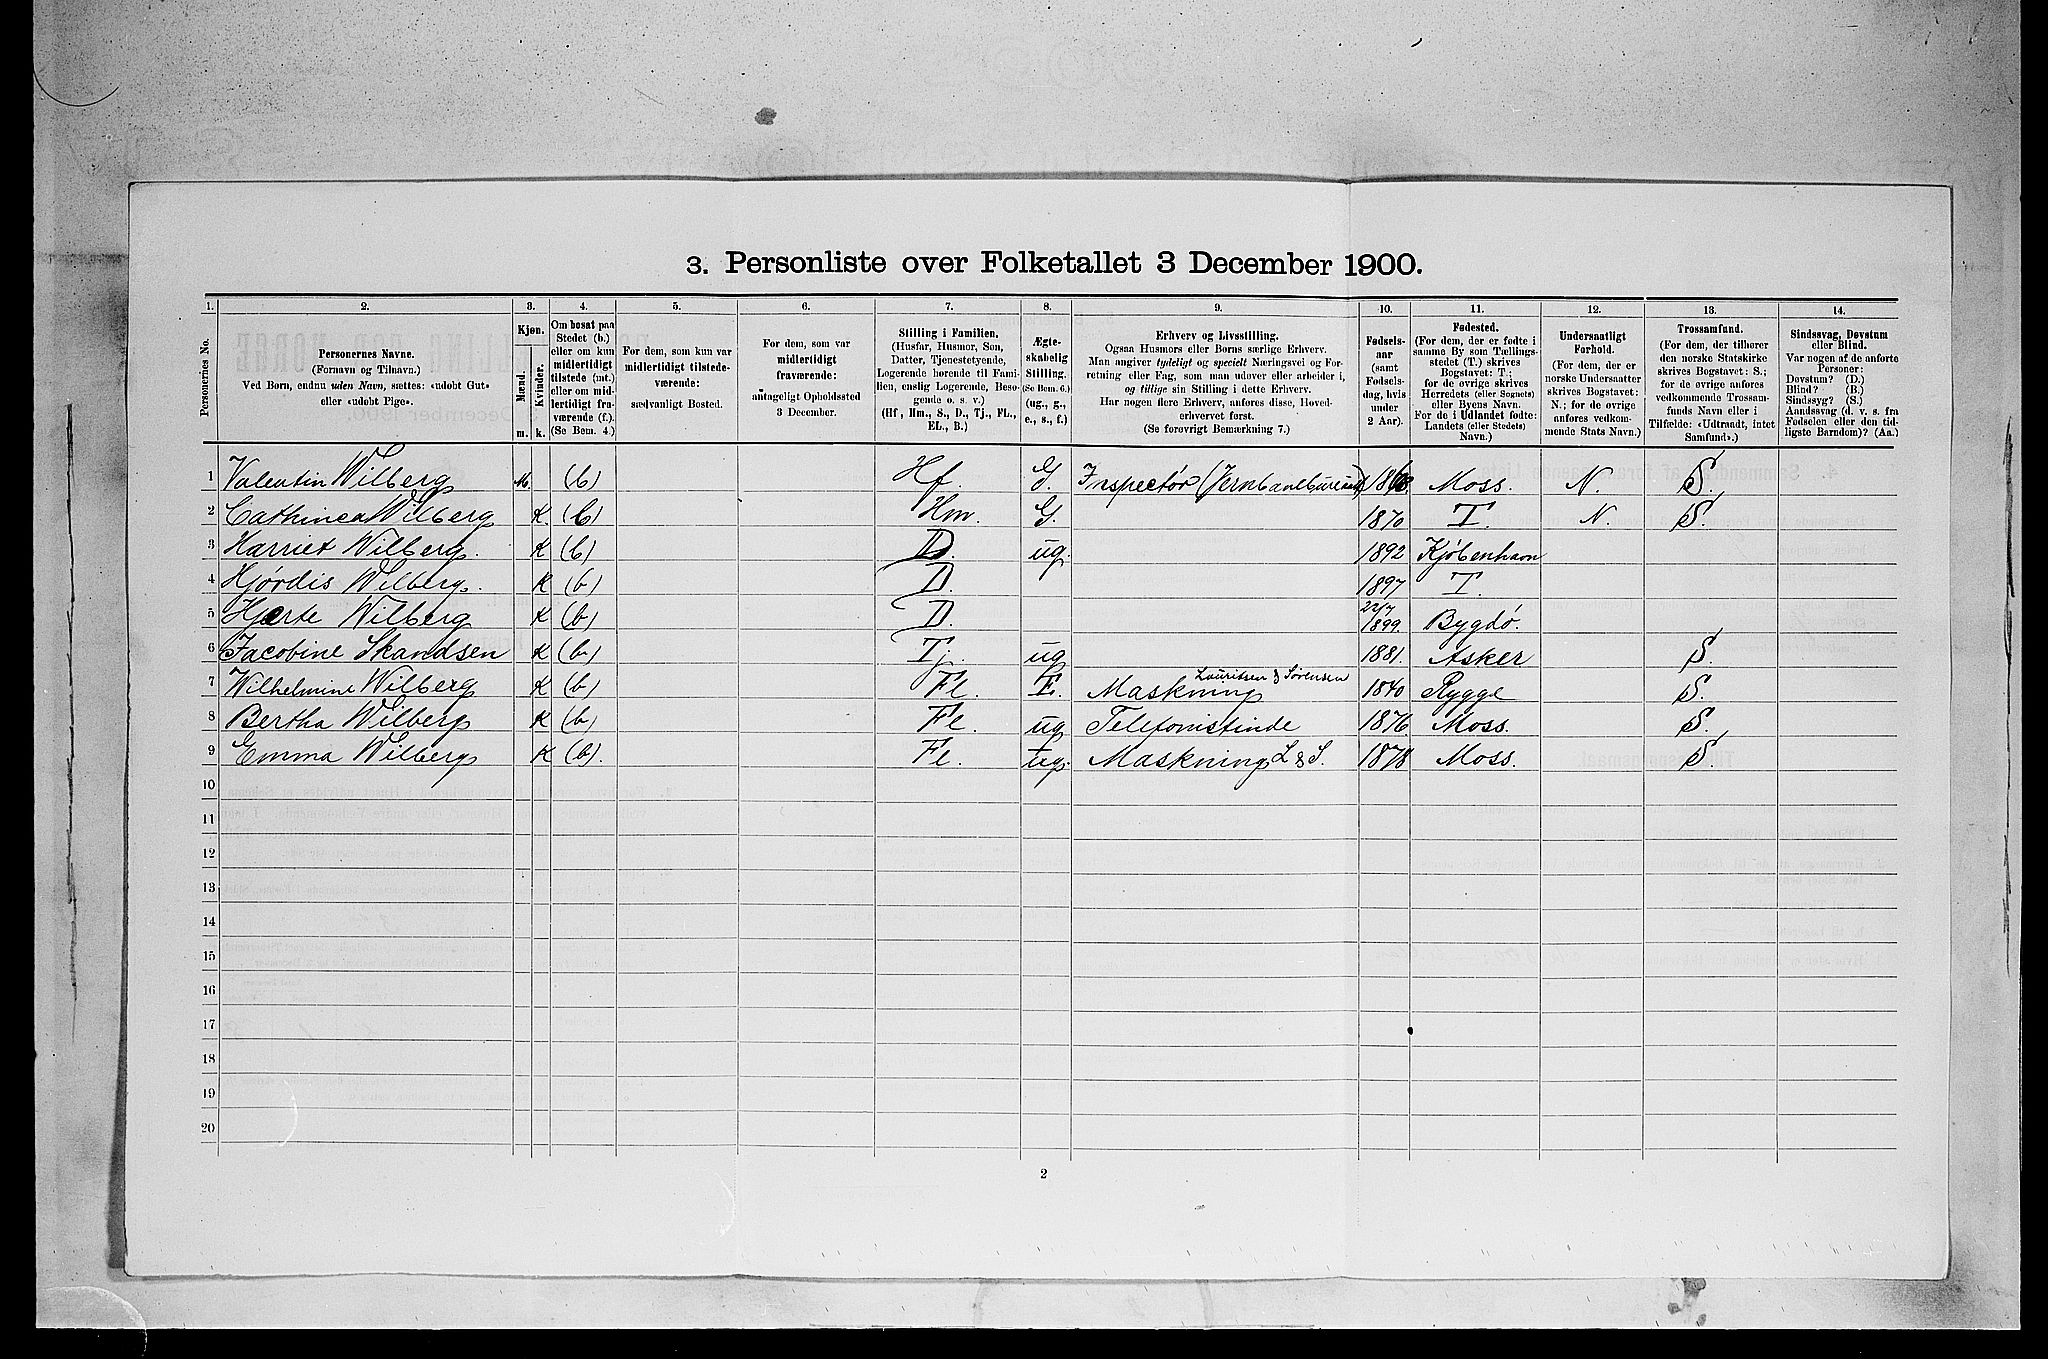 3. Personliste over Folketallet 3 December 1900.
1. 2. 3. 4. 5. 6. 7. 8. 9. 10. 11. 12. 13. 14.
Personernes No.
Personernes Navne.
(Fornavn og Tilnavn.)
Ved Børn, endnu uden Navn, sættes: «udøbt Gut»
eller «udøbt Pige».
Kjøn.
Mænd.
Kvinder.
m. k.
Om bosat paa
Stedet (b.)
eller om kun
midlertidigt
tilstede (mt.)
eller om mid-
lertidigt fra-
værende (f.).
(Se Bem. 4.)
For dem, som kun var
midlertidigt tilstede-
værende:
sædvanligt Bosted.
For dem, som var
midlertidigt
fraværende:
antageligt Opholdssted
3 December.
Stilling i Familien.
(Husfar, Husmor, Søn,
Datter, Tjenestetyende,
Logerende hørende til Fami-
lien, enslig Logerende, Besø-
gende o. s. v.)
(Hf, Hm., S., D., Tj., FL.,
EL., B.)
Ægte-
skabelig
Stilling.
(Se Bem. 6.)
(ug., g.,
e., s., f.)
Erhverv og Livsstilling.
Ogsaa Husmors eller Børns særlige Erhverv.
Man angiver tydeligt og specielt Næringsvei og For-
retning eller Fag, som man udøver eller arbeider i,
og tillige sin Stilling i dette Erhverv.
Har nogen flere Erhverv, anføres disse, Hoved-
erhvervet først.
(Se forøvrigt Bemærkning 7.)
Fødsels-
aar
(samt
Fødsels-
dag, hvis
under
2 Aar).
Fødested.
(For dem, der er fødte i
samme By som Tællings-
stedet (T.) skrives
Bogstavet: T.;
for de øvrige skrives
Herredets (eller Sognets)
eller Byens Navn.
For de i Udlandet fødte:
Landets (eller Stedets)
Navn.)
Undersaatligt
Forhold.
(For dem, der er
norske Undersaatter
skrives Bogstavet:
N.; for de øvrige
anføres vedkom-
mende Stats Navn.)
Trossamfund.
(For dem, der tilhører
den norske Statskirke
skrives Bogstavet: S.;
for de øvrige anføres
vedkommende Trossam-
funds Navn eller i
Tilfælde: «Udtraadt, intet
Samfund».)
Sindssvag, Døvstum
eller Blind.
Var nogen af de anførte
Personer:
Døvstum? (D.)
Blind? (B.)
Sindssyg? (S.)
Aandssvag (d. v. s. fra
Fødselen eller den tid-
ligste Barndom)? (Aa.)
1 Valentin Wilberg M. (b) Hf. G. Inspectør (Jernbanebureau) 1868. Moss. N. S.
2 Cathinca Wilberg K. (b) Hm. G. 1870 T. N. S.
3 Harriet Wilberg. K (b) D. ug. 1892 Kjøbenhavn
4 Hjørdis Wilberg. K (b) D. 1897 T.
5 Hjerte Wilberg K (b) D. 22/7 1899. Bygdø.
6 Jacobine Skandsen K (b) Tj. ug 1881. Asker S.
7 Wilhelmine Wilberg K (b) Fl. E. Maskning Lauritsen & Sørensen 1840 Rygge S.
8 Bertha Wilberg K (b) Fl. ug Telefonistinde 1876 Moss. S.
9 Emma Wilberg K (b). Fl. ug. Maskning L & S. 1878 Moss. S.
10
11
12
13
14
15
16
17
18
19
20
2